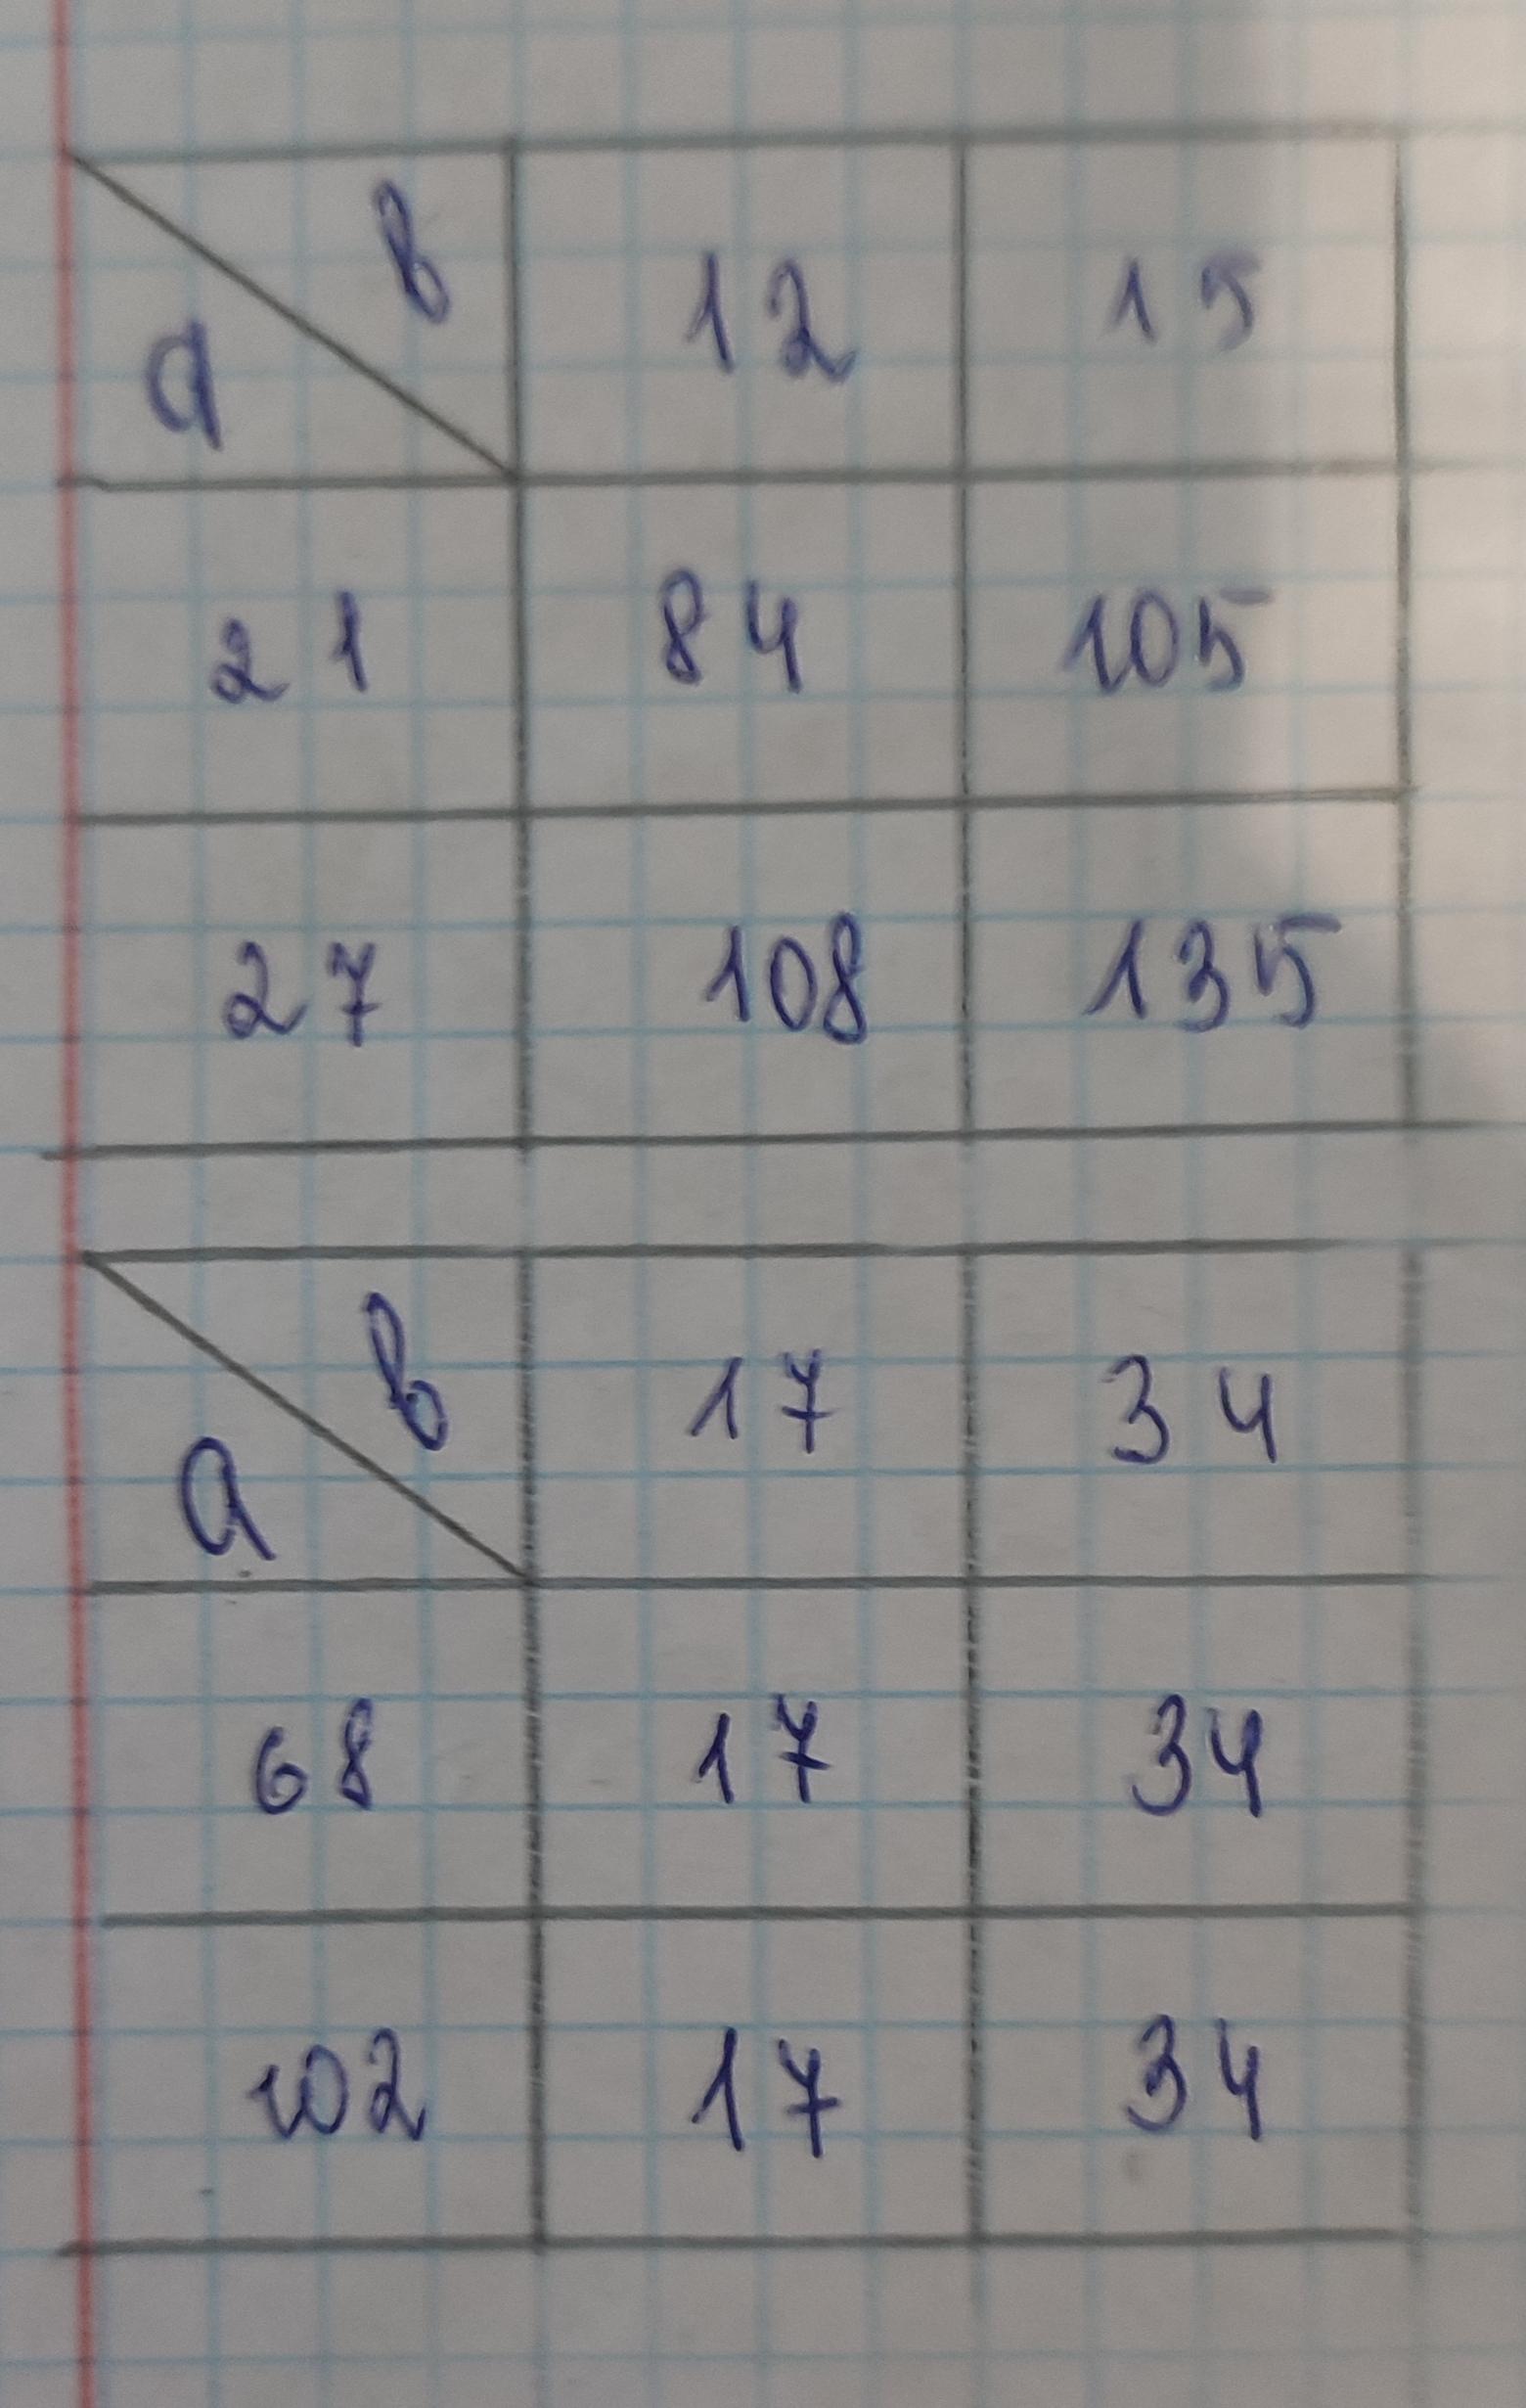 a b 12 15
21 84 105
27 108 135
a b 17 34
68 17 34
102 17 34